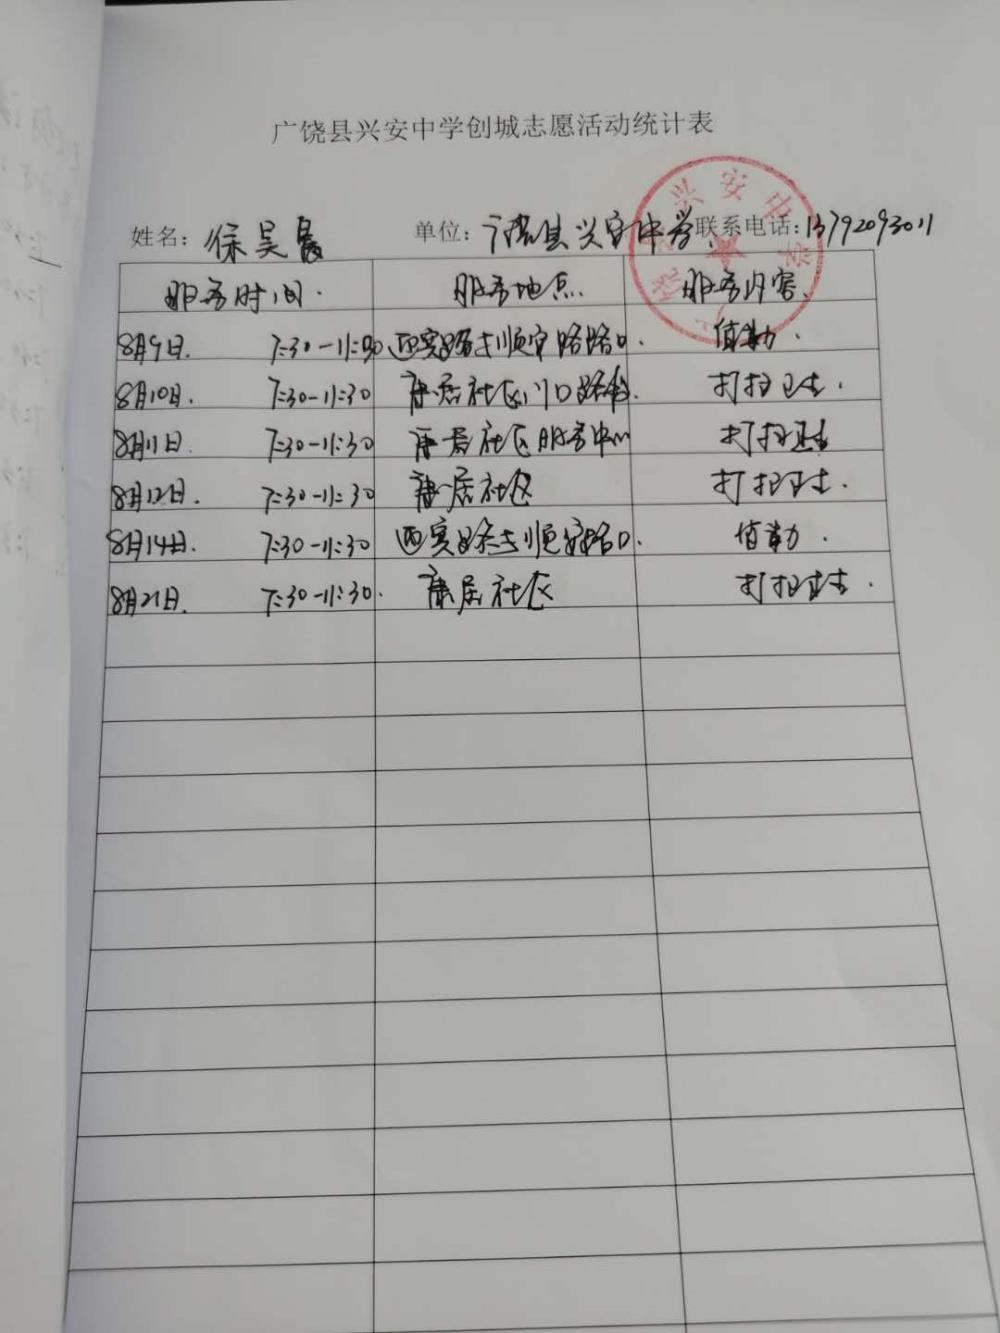 广饶县兴安中学创城志愿活动统计表
姓名： 单位：广饶县兴安中学 联系电话：13792093011
服务时间. 服务地点. 服务内容.
8月9日. 7:30-11:30 路与顺安路路口. 值勤.
8月10日. 7:30-11:30 康居社区门口路 打扫卫生.
8月11日 7:30-11:30 康居社区服务中心 打扫卫生
8月12日. 7:30-11:30 康居社区 打扫卫生.
8月14日. 7:30-11:30 路与顺安路口. 值勤.
8月21日. 7:30-11:30. 康居社区 打扫卫生.
兴安中学